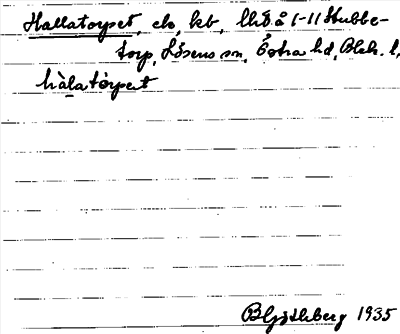 Hallatorpet, elo, kb, lht å 1-11 Stubbe-
torp, Lösens sn, Östra hd, Blek. l,
hàlatòrpet
Blyghberg 1935